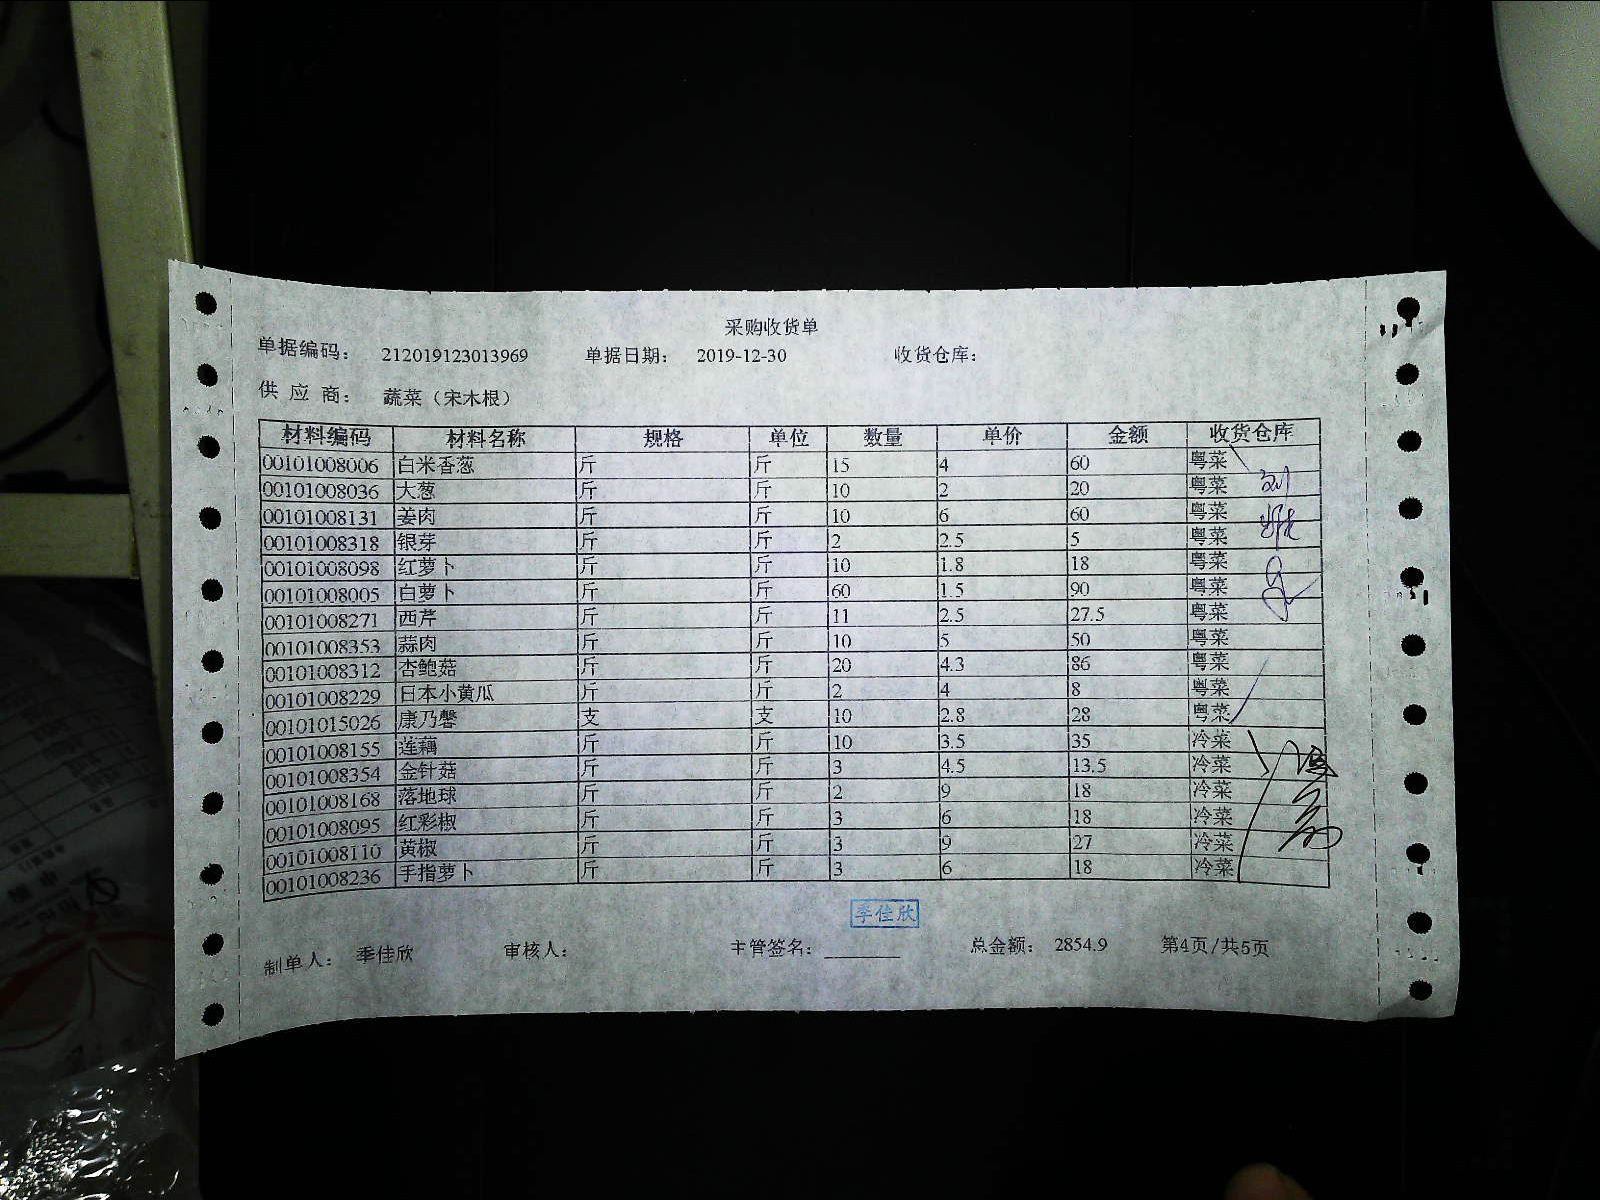 采购收货单
单据编码： 212019123013969 单据日期： 2019-12-30 收货仓库：
供 应 商： 蔬菜（宋木根）
材料编码 材料名称 规格 单位 数量 单价 金额 收货仓库
00101008006 白米香葱 斤 斤 15 4 60 粤菜
00101008036 大葱 斤 斤 10 2 20 粤菜
00101008131 姜肉 斤 斤 10 6 60 粤菜
00101008318 银芽 斤 斤 2 2.5 5 粤菜
00101008098 红萝卜 斤 斤 10 1.8 18 粤菜
00101008005 白萝卜 斤 斤 60 1.5 90 粤菜
00101008271 西芹 斤 斤 11 2.5 27.5 粤菜
00101008353 蒜肉 斤 斤 10 5 50 粤菜
00101008312 杏鲍菇 斤 斤 20 4.3 86 粤菜
00101008229 日本小黄瓜 斤 斤 2 4 8 粤菜
00101015026 康乃馨 支 支 10 2.8 28 粤菜
00101008155 莲藕 斤 斤 10 3.5 35 冷菜
00101008354 金针菇 斤 斤 3 4.5 13.5 冷菜
00101008168 落地球 斤 斤 2 9 18 冷菜
00101008095 红彩椒 斤 斤 3 6 18 冷菜
00101008110 黄椒 斤 斤 3 9 27 冷菜
00101008236 手指萝卜 斤 斤 3 6 18 冷菜
季佳欣
制单人： 季佳欣 审核人： 主管签名：________ 总金额： 2854.9 第4页/共5页